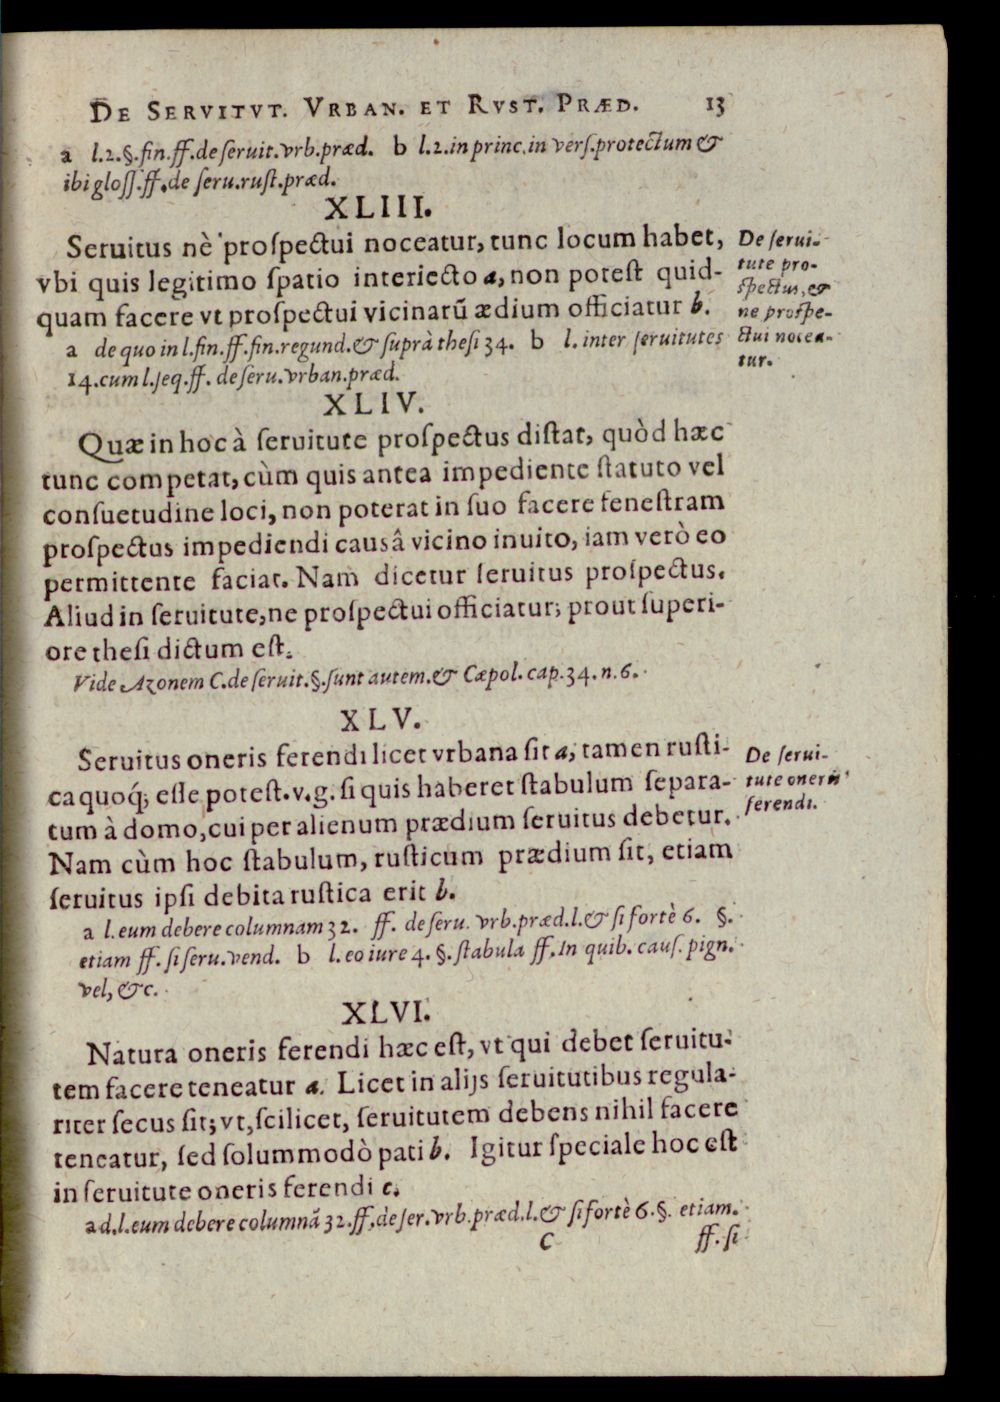 De Servitvt. Vrban. et Rvst. Præd. 13
a l.2.§.fin.ff.de ſeruit.vrb.præd. b l.2.in princ.in verſ.protectum &
ibi gloſſ.ff.de ſeru.ruſt.præd.
XLIII.
Seruitus nè proſpectui noceatur, tunc locum habet,
vbi quis legitimo ſpatio interiecto a, non poteſt quid-
quam facere vt proſpectui vicinarũ ædium officiatur b.
a de quo in l.fin.ff.fin.regund.& ſuprà theſi 34. b l.inter ſeruitutes
14.cum l.ſeq.ff. de ſeru.vrban.præd.
De ſerui-
tute pro-
ſpectus, &
ne proſpe-
ctui nocea-
tur.
XLIV.
Quæ in hoc à ſeruitute proſpectus diſtat, quòd hæc
tunc competat, cùm quis antea impediente ſtatuto vel
conſuetudine loci, non poterat in ſuo facere feneſtram
proſpectus impediendi causâ vicino inuito, iam verò eo
permittente faciat. Nam dicetur ſeruitus proſpectus.
Aliud in ſeruitute, ne proſpectui officiatur; prout ſuperi-
ore theſi dictum eſt.
Vide Azonem C.de ſeruit.§.ſunt autem.& Cæpol. cap.34.n.6.
XLV.
Seruitus oneris ferendi licet vrbana ſit a, tamen ruſti-
ca quoq; eſſe poteſt.v.g. ſi quis haberet ſtabulum ſepara-
tum à domo, cui per alienum prædium ſeruitus debetur.
Nam cùm hoc ſtabulum, ruſticum prædium ſit, etiam
ſeruitus ipſi debita ruſtica erit b.
De ſerui-
tute oneris
ferendi.
a l.eum debere columnam 32. ff. de ſeru. vrb.præd.l.& ſi fortè 6. §.
etiam ff. ſi ſeru.vend. b l.eo iure 4. §.ſtabula ff.In quib. cauſ. pign.
vel, &c.
XLVI.
Natura oneris ferendi hæc eſt, vt qui debet ſeruitu-
tem facere teneatur a. Licet in alijs ſeruitutibus regula-
riter ſecus ſit; vt, ſcilicet, ſeruitutem debens nihil facere
teneatur, ſed ſolummodò pati b. Igitur ſpeciale hoc eſt
in ſeruitute oneris ferendi c.
a d.l.eum debere columnã 32.ff.de ſer.vrb.præd.l.& ſi fortè 6.§. etiam.
C ff. ſi